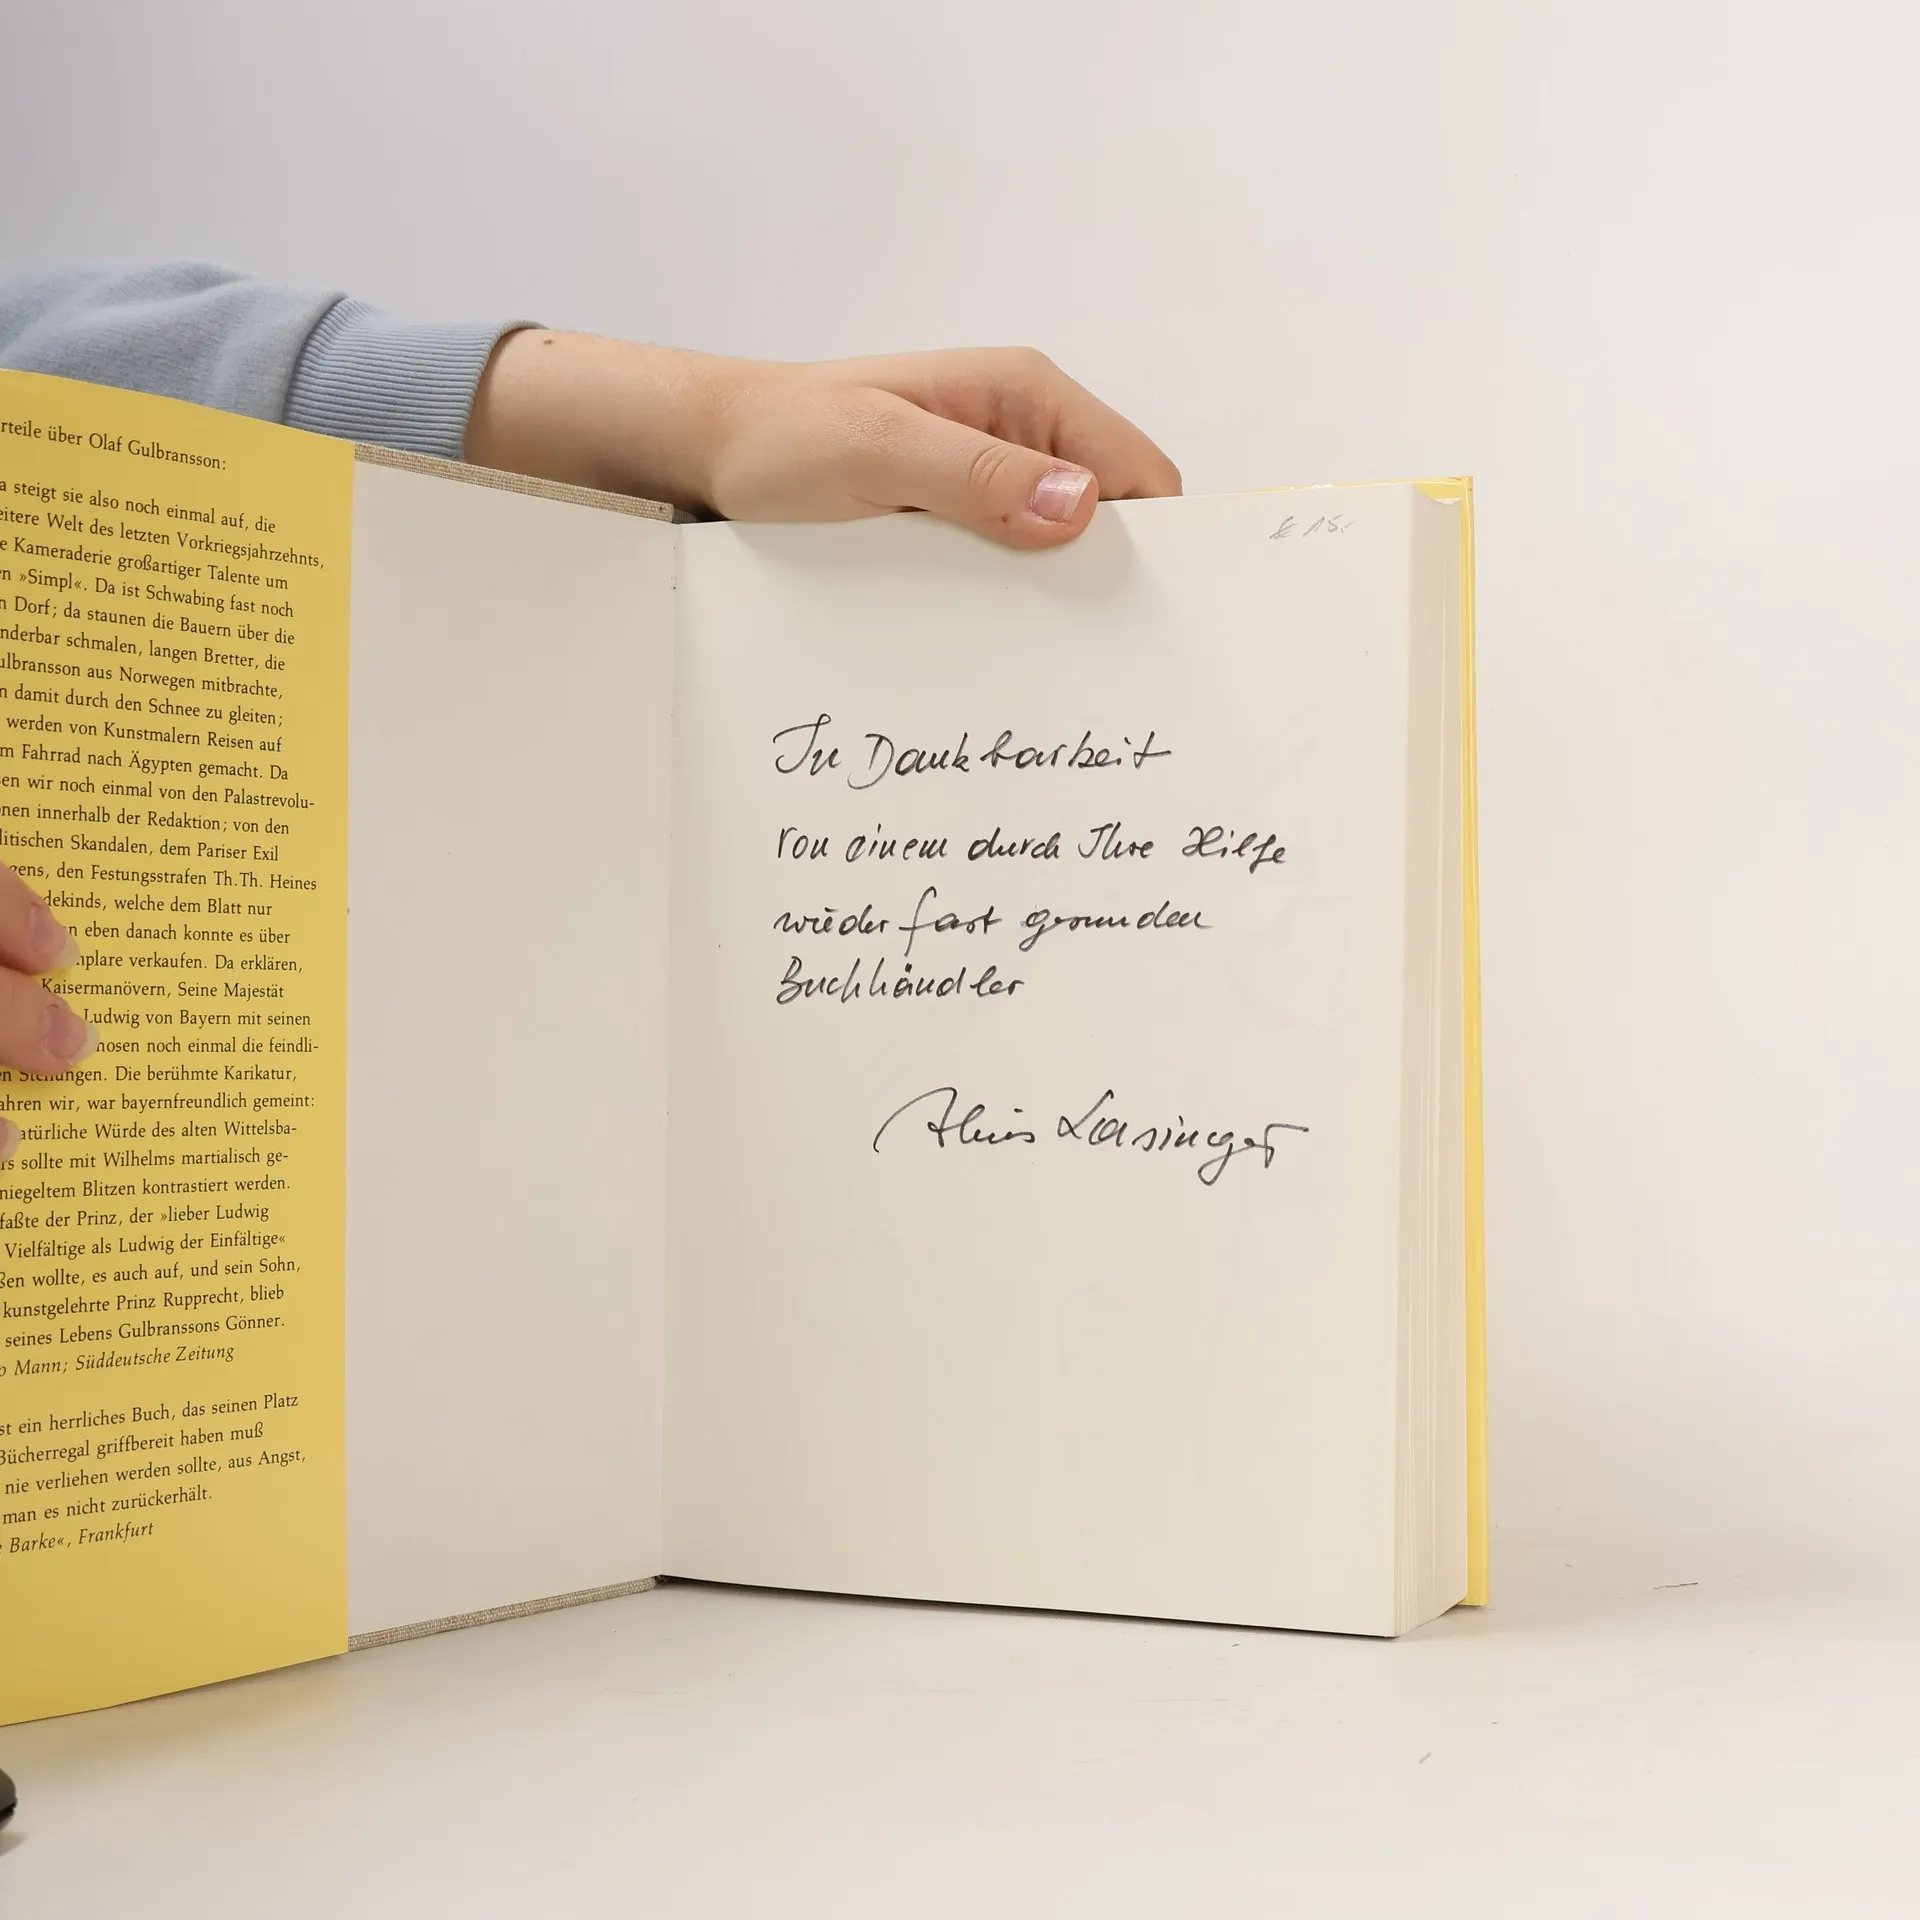 rteile über Olaf Gulbransson:
a steigt sie also noch einmal auf, die
eitere Welt des letzten Vorkriegsjahrzehnts,
e Kameraderie großartiger Talente um
en »Simpl«. Da ist Schwabing fast noch
n Dorf; da staunen die Bauern über die
nderbar schmalen, langen Bretter, die
ulbransson aus Norwegen mitbrachte,
m damit durch den Schnee zu gleiten;
werden von Kunstmalern Reisen auf
m Fahrrad nach Ägypten gemacht. Da
sen wir noch einmal von den Palastrevolu-
onen innerhalb der Redaktion; von den
litischen Skandalen, dem Pariser Exil
gens, den Festungsstrafen Th.Th. Heines
dekinds, welche dem Blatt nur
n eben danach konnte es über
mplare verkaufen. Da erklären,
Kaisermanövern, Seine Majestät
Ludwig von Bayern mit seinen
hosen noch einmal die feindli-
en Stellungen. Die berühmte Karikatur,
ahren wir, war bayernfreundlich gemeint:
atürliche Würde des alten Wittelsba-
rs sollte mit Wilhelms martialisch ge-
niegeltem Blitzen kontrastiert werden.
faßte der Prinz, der »lieber Ludwig
Vielfältige als Ludwig der Einfältige«
ßen wollte, es auch auf, und sein Sohn,
kunstgelehrte Prinz Rupprecht, blieb
seines Lebens Gulbranssons Gönner.
o Mann; Süddeutsche Zeitung
st ein herrliches Buch, das seinen Platz
Bücherregal griffbereit haben muß
nie verliehen werden sollte, aus Angst,
man es nicht zurückerhält.
e Barke«, Frankfurt
€ 15.-
In Dankbarkeit
von einem durch Ihre Hilfe
wieder fast gesunden
Buchhändler
Alois Lasinger